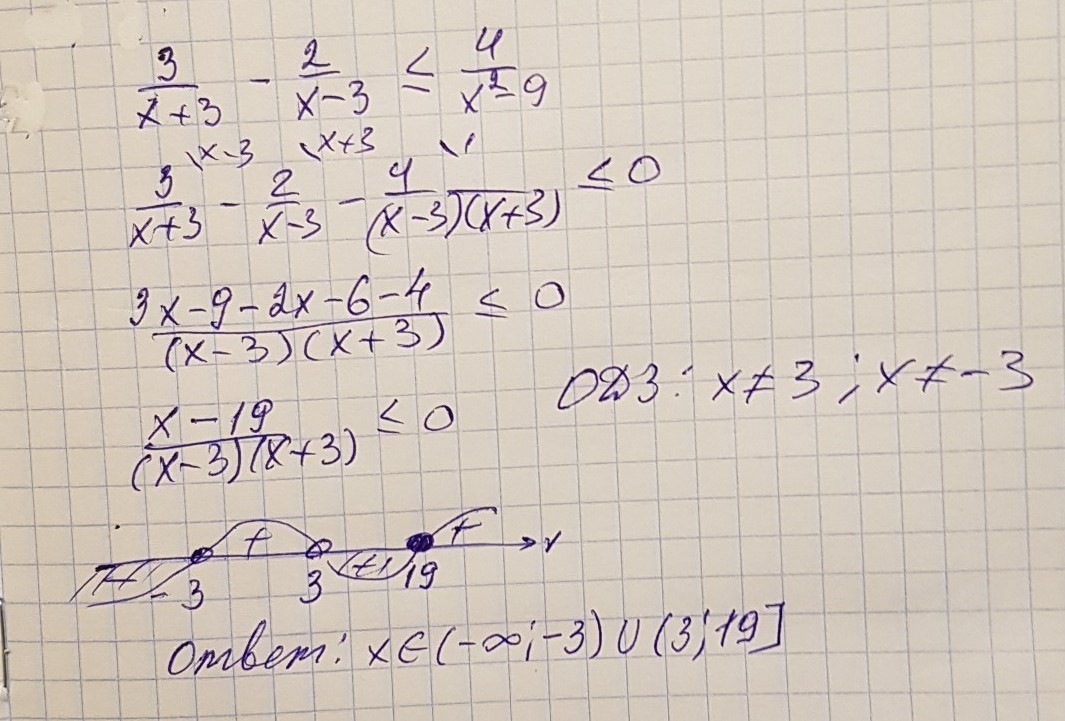 3/(x+3) - 2/(x-3) ≤ 4/(x²-9)
\x-3 \x+3 \1
3/(x+3) - 2/(x-3) - 4/((x-3)(x+3)) ≤ 0
(3x-9-2x-6-4)/((x-3)(x+3)) ≤ 0
ОДЗ: x≠3; x≠-3
(x-19)/((x-3)(x+3)) ≤ 0
+ + x
-3 3 19
Ответ: x∈(-∞;-3)∪(3;19]